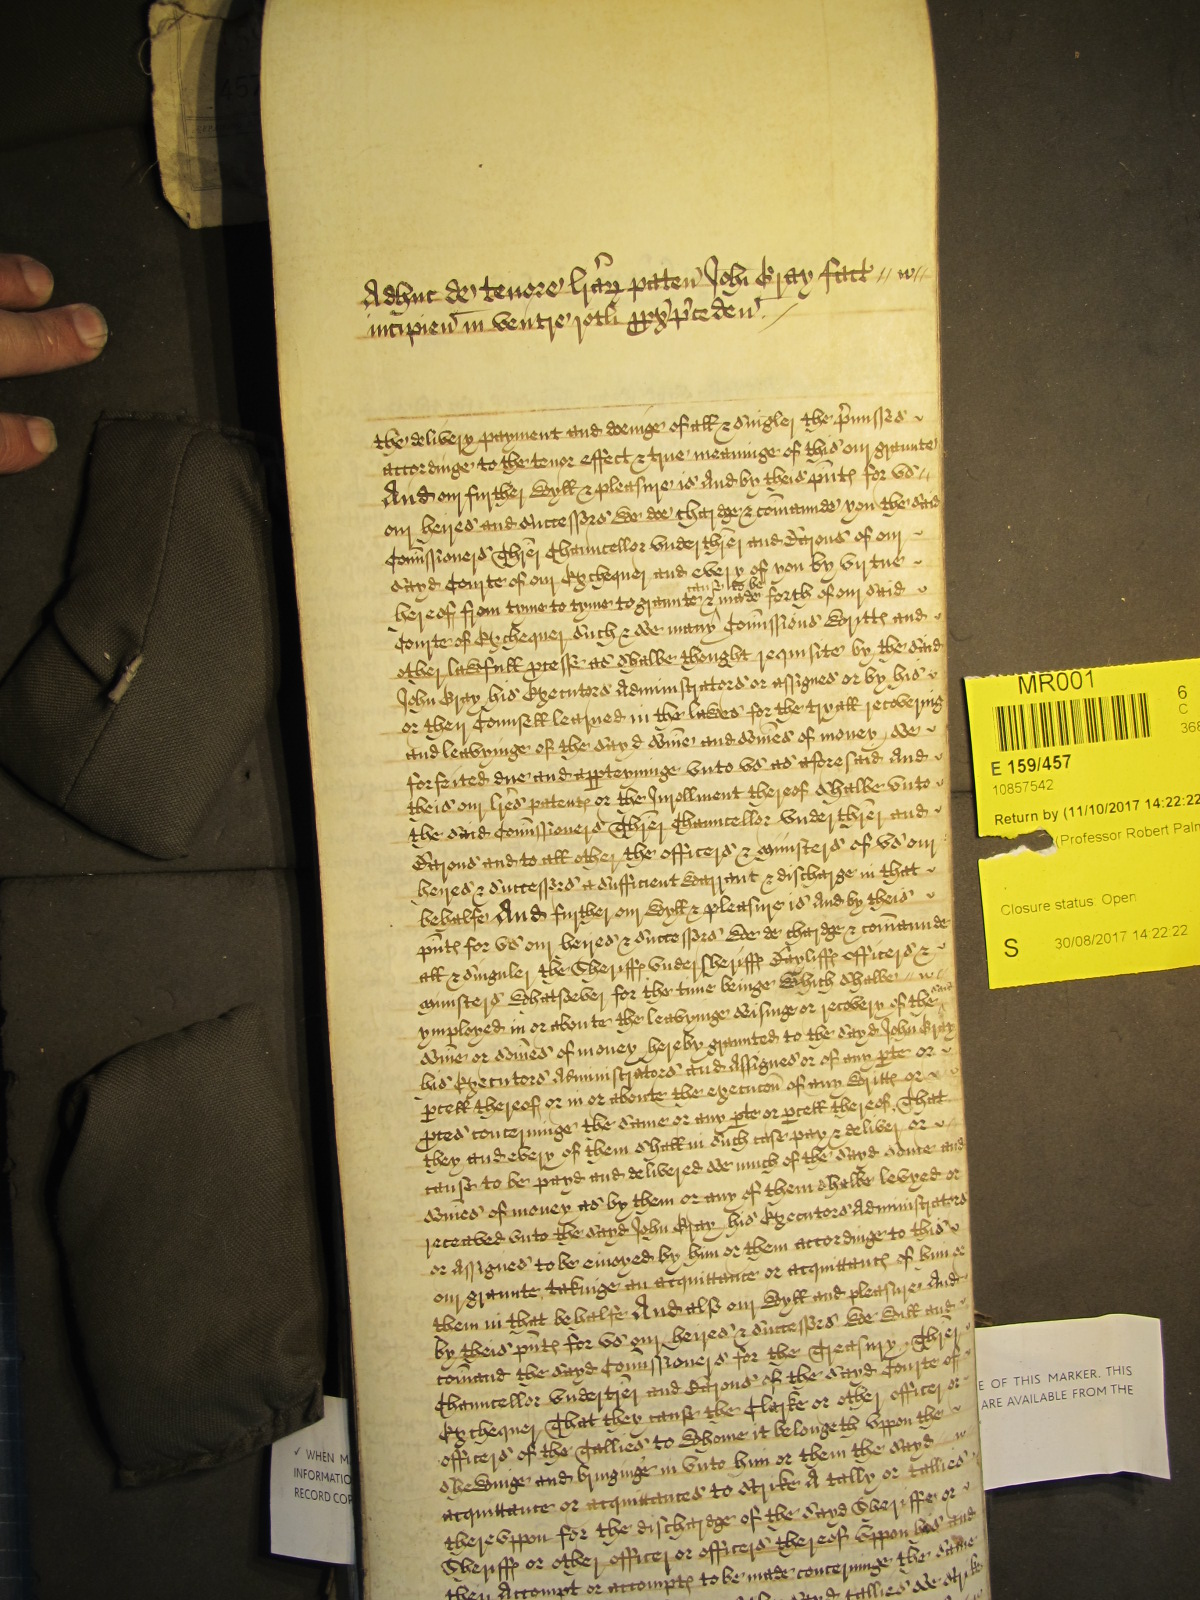 Adhuc de tenore lrar paten Johi Gray fact
incipien in ventre rotli px preceden
the delivery payment and doeinge of all & singler the pmisses
accordinge to the tenor effect & true meaninge of this our graunte
And our further wyll & pleasure is And by theis pnts for us
our heires and successors we doe chardge & comaunde you the said
Comissioners Threr Chauncellor underthrer and Barons of our
sayd Courte of our Exchequer and every of you by virtue
hereof from tyme to tyme to graunte & cause to be made forth of our said
Courte of Exchequer such & soe many Comissions writts and
other lawfull pcesse as shalbe thought requisite by the said
John Gray his Executors Administrators or assignes or by his
or their Counsell learned in the lawes for the tryall recovering
and leavyinge of the sayd some and somes of money soe
forfeited due and apperteyninge unto us as aforesaid And
theis our lres patents or the Inrollment thereof shalbe unto
the said Comissioners Threr Chauncellor underthrer and
Barons and to all other the officers & ministers of us our
heires & successors a sufficient warrant & discharge in that
behalfe And further our wyll & pleasure is And by theis
pnts for us our heires & successors we doe chardge & comaunde
all & singuler the Sheriffs undersheriffs Bayliffs officers &
ministers whatsoever for the time beinge which shalbe
ymployed in or aboute the leavyinge seisinge or recovery of the said
some or somes of money hereby graunted to the sayd John Gray
his Executors Administrators and Assignes or of any pte or
pcell thereof or in or aboute the execucon of any writts or
pces concerninge the same or any pte or pcell thereof That
they and every of them shall in such case pay & deliver or
cause to be payd and delivered soe much of the sayd some and
somes of money as by them or any of them shalbe levyed or
receaved unto the sayd John Gray his Executors Administrators
or Assignes to be enioyed by him or them accordinge to this
our graunte takinge an acquittance or acquittancs of him or
them in that behalfe And also our wyll and pleasure And
by theis pnts for us our heires & successors we will and
comand the sayd Comissioners for the Treasury Threr
Chauncellor undertrer and Barons of the sayd Courte of
Exchequer That they cause the Clarke or other officer or
officers of the Tallies to whome it belongeth uppon the
shewinge and bringinge in unto him or them the sayd
acquittance or acquittances to strike A tally or tallies
thereuppon for the dischardge of the sayd Sheriffe or
Sheriffs or other officer or officers thereof uppon his and
their Accompt or accompts to be made concerninge the same
sayd tallies soe strike
MR001
E 159/457
10857542
Return by (11/10/2017 14:22:22
(Professor Robert Palm
Closure status: Open
S
30/08/2017 14:22:22
6
C
368
E OF THIS MARKER. THIS
ARE AVAILABLE FROM THE
✓ WHEN M
INFORMATIO
RECORD COP
457